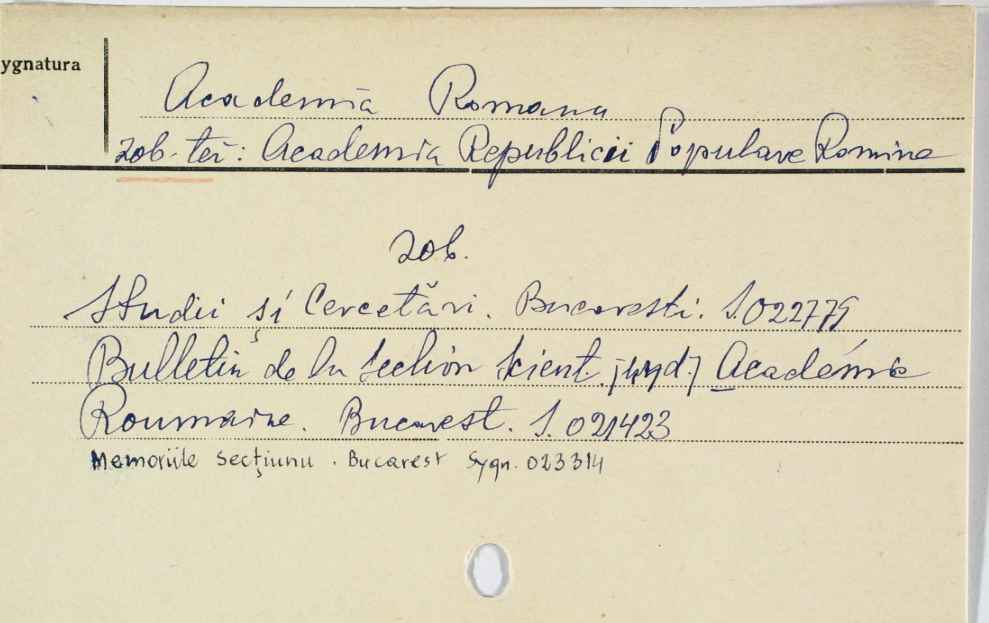 ygnatura
Academia Romana
zob. też: Academia Republicii Populare Romine
zob.
Studii și Cercetări. Bucaresti. S.022779
Bulletin de la Section Scient. [wyd.] Académie
Roumaine. Bucarest. S. 021423
Memoriile Secțiunu. Bucarest Sygn. 023314